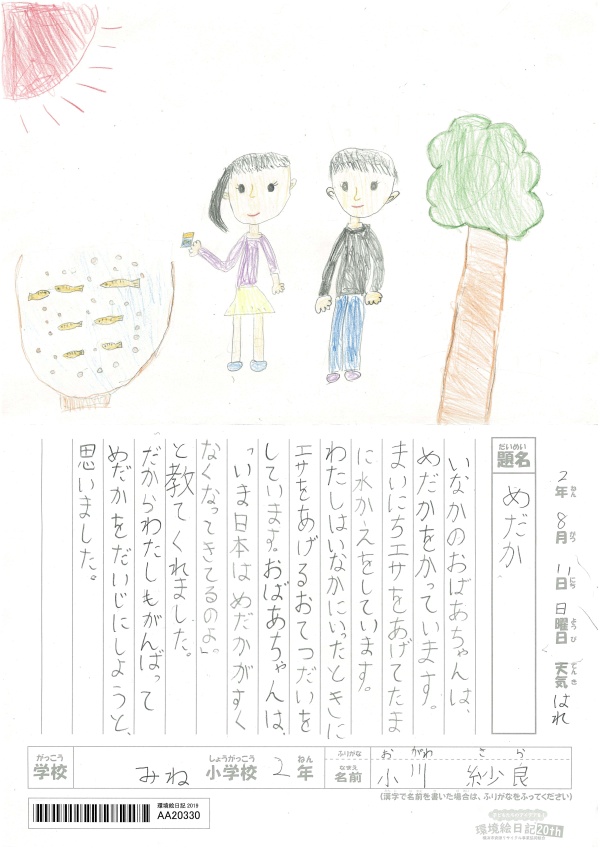 2年8月11日日曜日天気はれ
ねん がつ にち ようび てんき
だいめい
題名 めだか
いなかのおばあちゃんは、
めだかをかっています。
まいにちエサをあげてたま
に水かえをしています。
わたしはいなかにいったときに
エサをあげるおてつだいを
しています。おばあちゃんは、
「いま日本はめだかがすく
なくなってきてるのよ。」
と教てくれました。
だからわたしもがんばって
めだかをだいじにしようと、
思いました。
がっこう しょうがっこう ねん
学校 みね 小学校 2年
ふりがな おがわ さら
なまえ
名前 小川 紗良
(漢字で名前を書いた場合は、ふりがなをふってください)
環境絵日記 2019
AA20330
環境絵日記20th